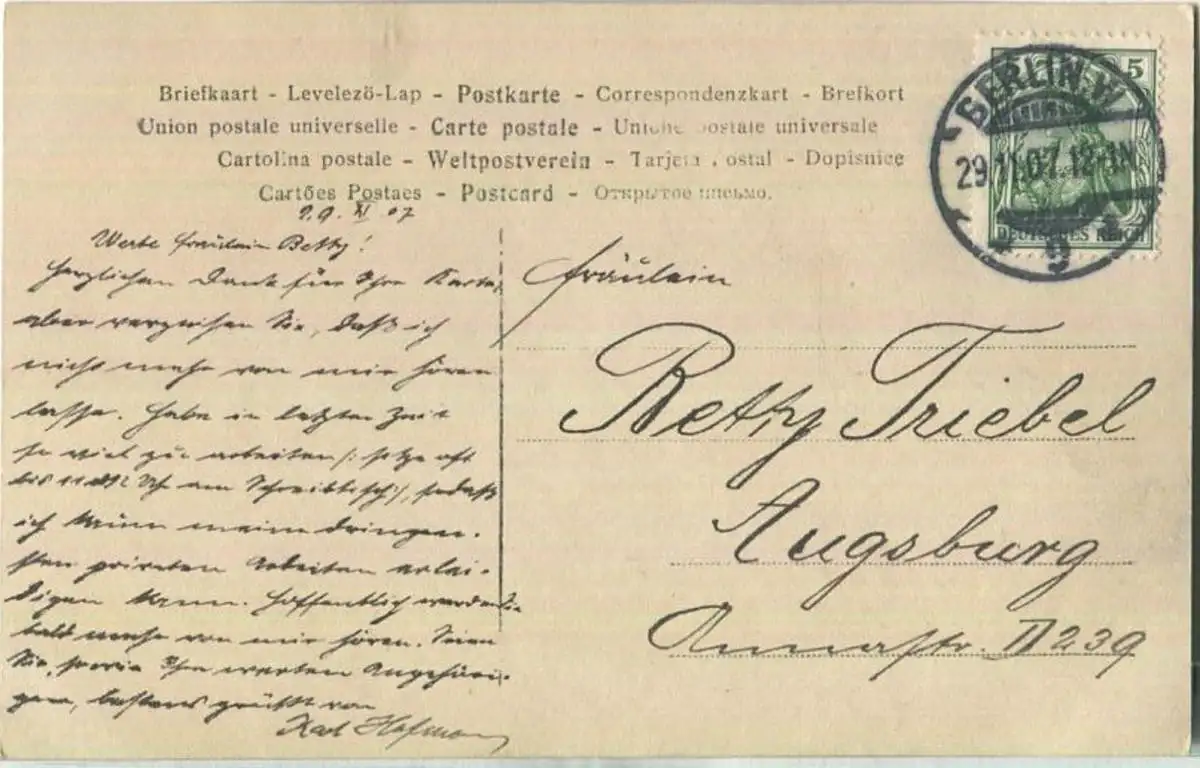 Briefkaart - Levelezö-Lap - Postkarte - Correspondenzkart - Brefkort
Union postale universelle - Carte postale - Unione postale universale
Cartolina postale - Weltpostverein - Tarjeta postal - Dopisnice
Cartões Postaes - Postcard - Открытое письмо.
BERLIN.W.
29.11.07.12-1N
9
5
DEUTSCHES REICH
29. XI 07
Werte Fräulein Betty!
Herzlichen Dank für Ihre Karte,
aber verzeihen Sie, daß ich
nicht mehr von mir hören
lasse. Habe in letzter Zeit
so viel zu arbeiten /: sitze oft
bis 11 Uhr am Schreibtisch :/, sodaß
ich kaum meine dringen-
sten privaten Arbeiten erle-
digen kann. Hoffentlich werden Sie
bald mehr von mir hören. Seien
Sie, sowie Ihre werten Angehöri-
gen, bestens grüßt von
Karl Hofmann
Fräulein
Betty Triebel
Augsburg
Annastr. II 239